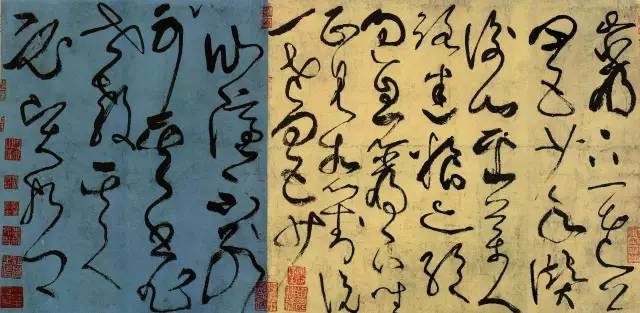 巖下一老公
四五少年贊
衡山採藥人
路迷糧亦絕
過息巖下坐
正見相對說
一老四五少
仙隱不別
可其書非
世教其人
必賢哲